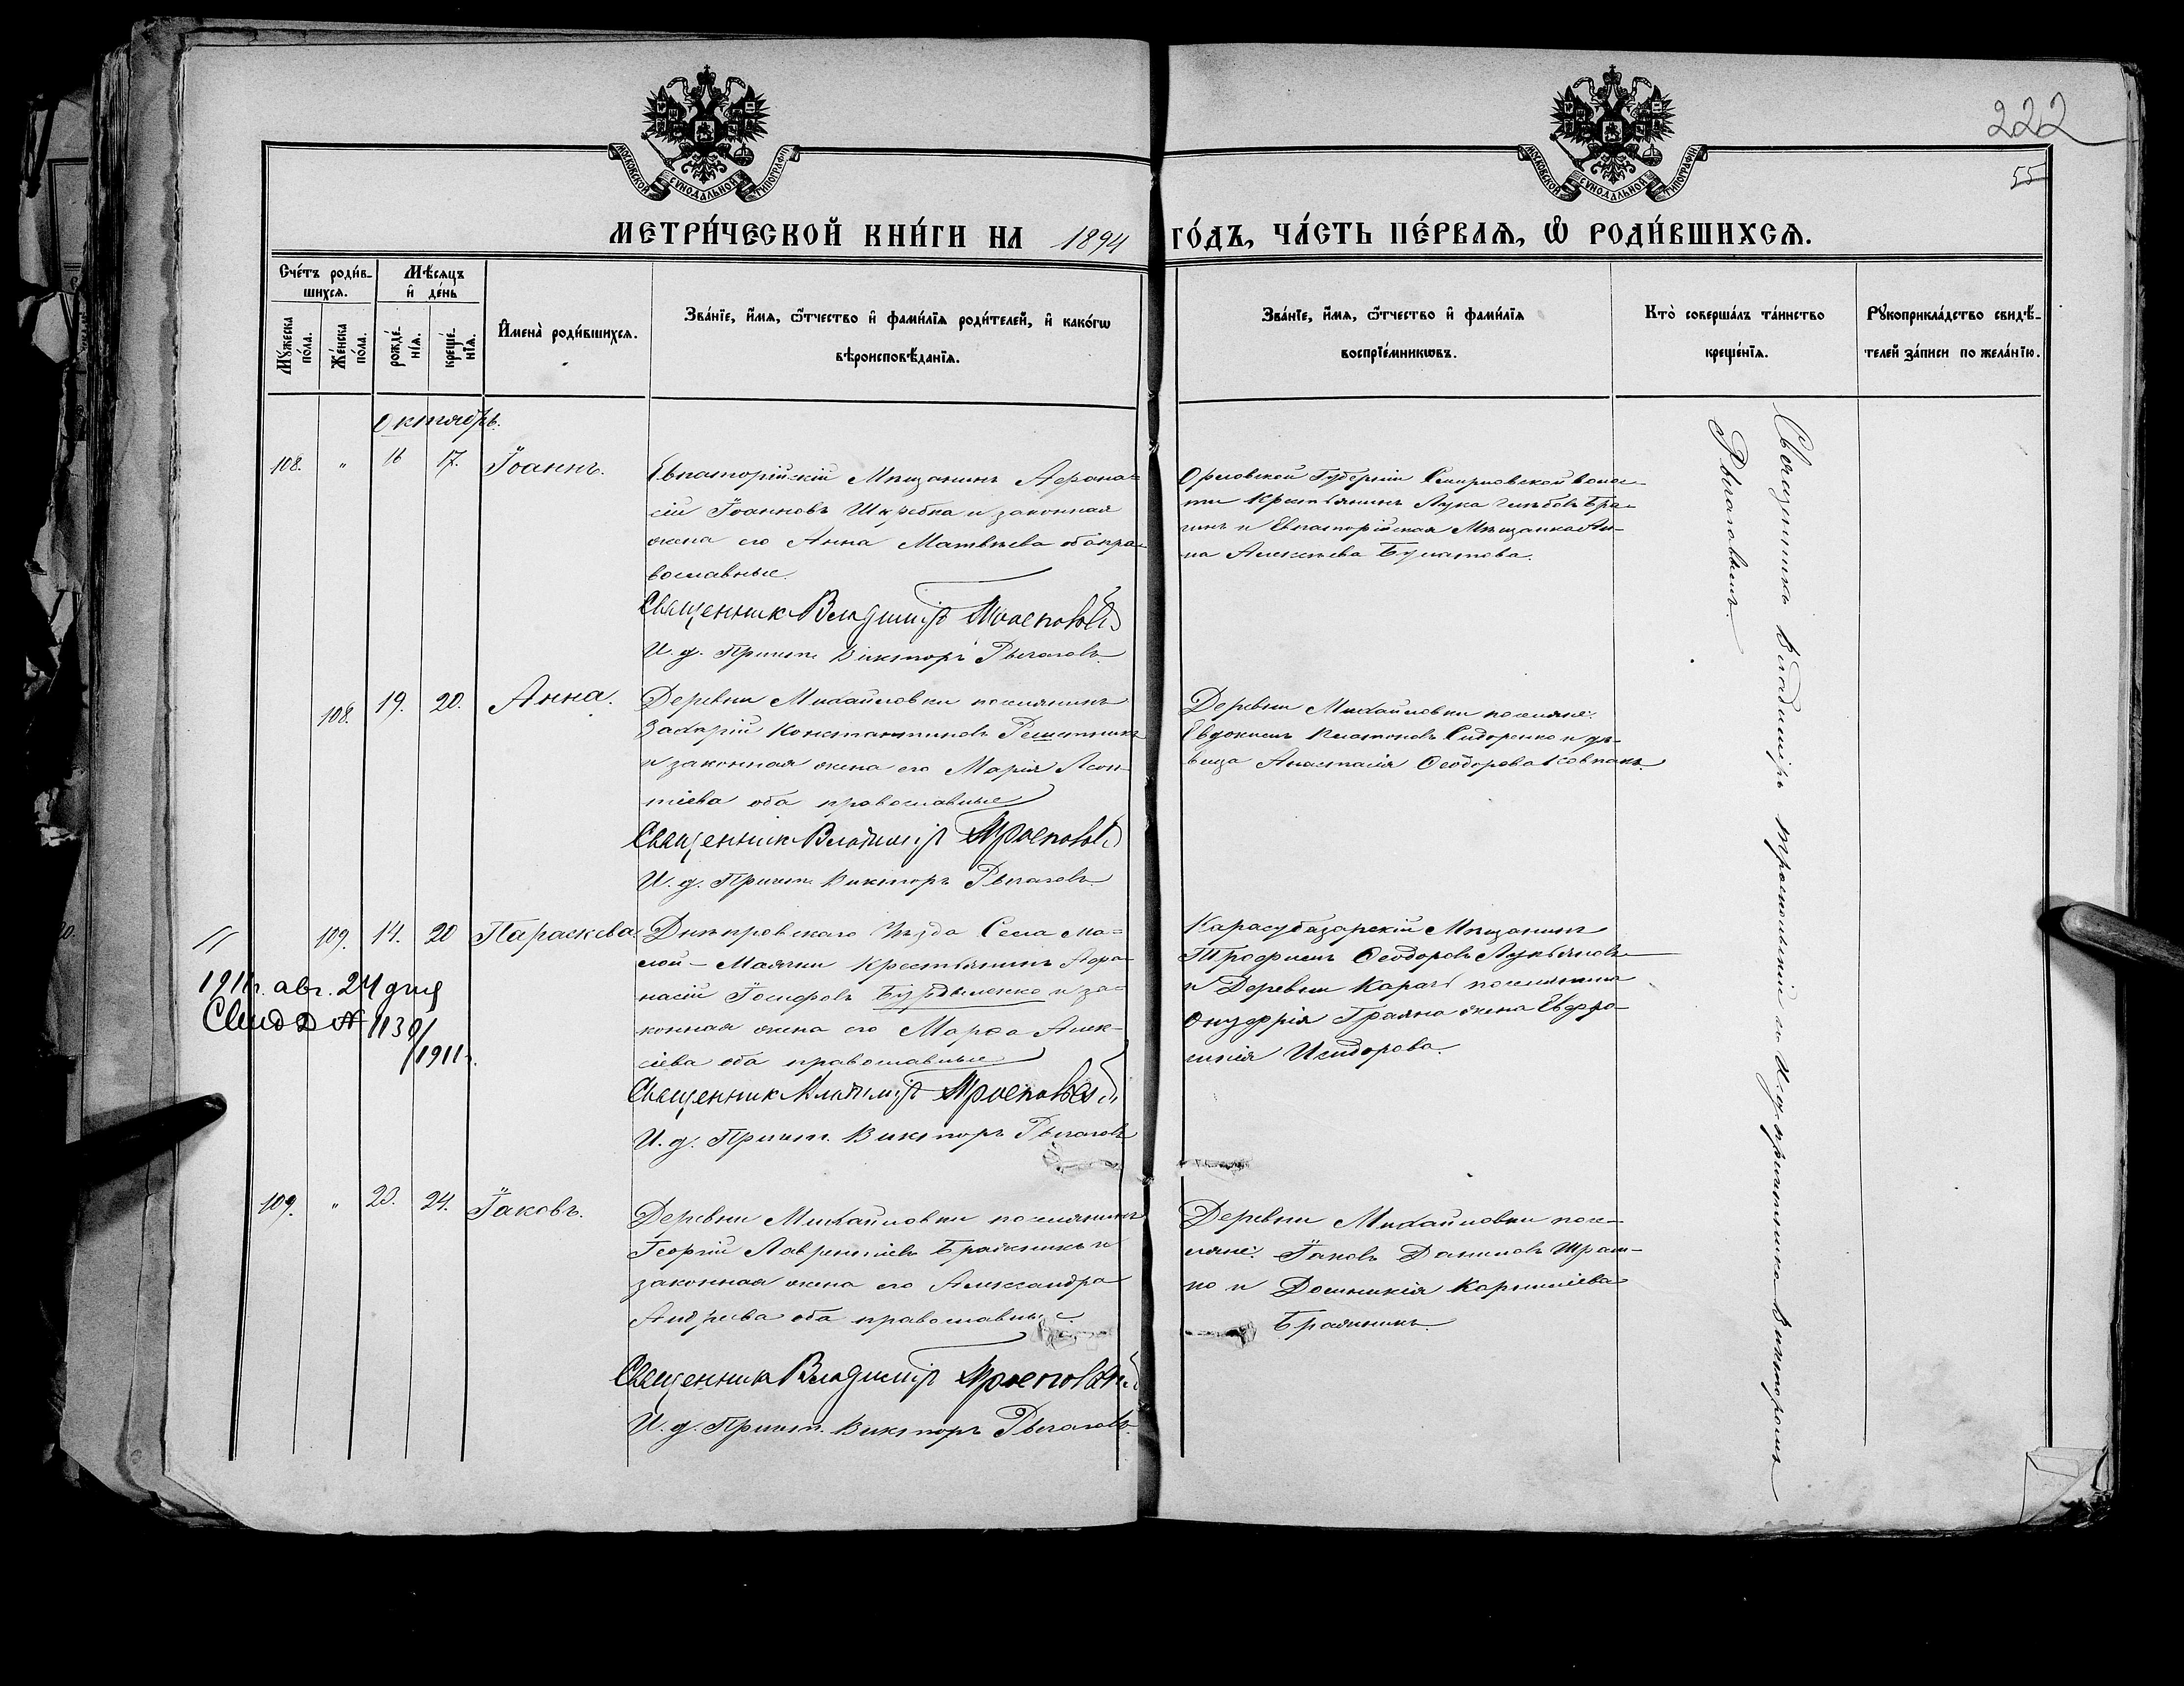 222
55
МОСКОВСКОЙ СѴНОДАЛЬНОЙ ТИПОГРАФІИ
МОСКОВСКОЙ СѴНОДАЛЬНОЙ ТИПОГРАФІИ
МЕТРИ́ЧЕСКОЙ КНИ́ГИ НА 1894 ГО́ДЪ, ЧА́СТЬ ПЕ́РВАѦ, Ѡ РОДИ́ВШИХСѦ.
Сче́тъ роди́в-
шихсѧ.
Мѣ́сѧцъ
и҆ де́нь
Мꙋ́жеска
по́ла.
Же́нска
по́ла.
рожде́-
нїѧ.
креще́-
нїѧ.
И҆мена̀ роди́вшихсѧ.
Зва́нїе, и҆́мѧ, ѻ҆́тчество и҆ фами́лїѧ роди́телей, и҆ како́гѡ
вѣроисповѣ́данїѧ.
Зва́нїе, и҆́мѧ, ѻ҆́тчество и҆ фами́лїѧ
воспрїе́мникѡвъ.
Кто̀ соверша́лъ та́инство
креще́нїѧ.
Рꙋкоприкла́дство свидѣ́-
телей за́писи по жела́нїю.
Октябрь.
108. " 16 17. Іоаннъ.
Евпаторійскій Мѣщанинъ Афана-
сій Іоанновъ Шкребка и законная
жена его Анна Матвѣева оба пра-
вославные.
Священникъ Владиміръ
И. д. Причетн. Викторъ Рыгаловъ
Орловской Губерніи Смирновской волос-
ти Крестьянинъ Лука Глѣбовъ Бра-
гинъ и Евпаторійская Мѣщанка Ан-
на Алексѣева Булатова.
Священникъ Владиміръ съ И. д. причетника Викторомъ
108. 19. 20. Анна.
Деревни Михайловки поселянинъ
Захарій Константиновъ Решетникъ
и законная жена его Марія Леон-
тіева оба православные
Священникъ Владиміръ
И. д. Причетн. Викторъ Рыгаловъ
Деревни Михайловки поселяне:
Евдокимъ Платоновъ Сидоренко и дѣ-
вица Анастасія Ѳеодорова Ковпакъ.
109. 14. 20 Параскева.
Днѣпровскаго Уѣзда Села Ма-
лой-Маячки Крестьянинъ Афа-
насій Іосифовъ Бурдыленко и за-
конная жена его Марѳа Алек-
сіева оба православные
Священникъ Владиміръ
И. д. Причетн. Викторъ Рыгаловъ
Карасубазарскій Мѣщанинъ
Трофимъ Ѳеодоровъ Лукьяновъ
и Деревни Карачъ поселянина
Онуфрія Граяна жена Евфро-
синія Исидорова.
1911г. авг. 24 дня
Свид № 1139/
1911г.
109. " 23. 24. Іаковъ.
Деревни Михайловки поселянинъ
Георгій Лаврентіевъ Браяникъ и
законная жена его Александра
Андреева оба православные
Священникъ Владиміръ
И. д. Причетн. Викторъ Рыгаловъ
Деревни Михайловки посе-
ляне: Іаковъ Даниловъ Шрам-
ко и Домникія Корниліева
Браяникъ.